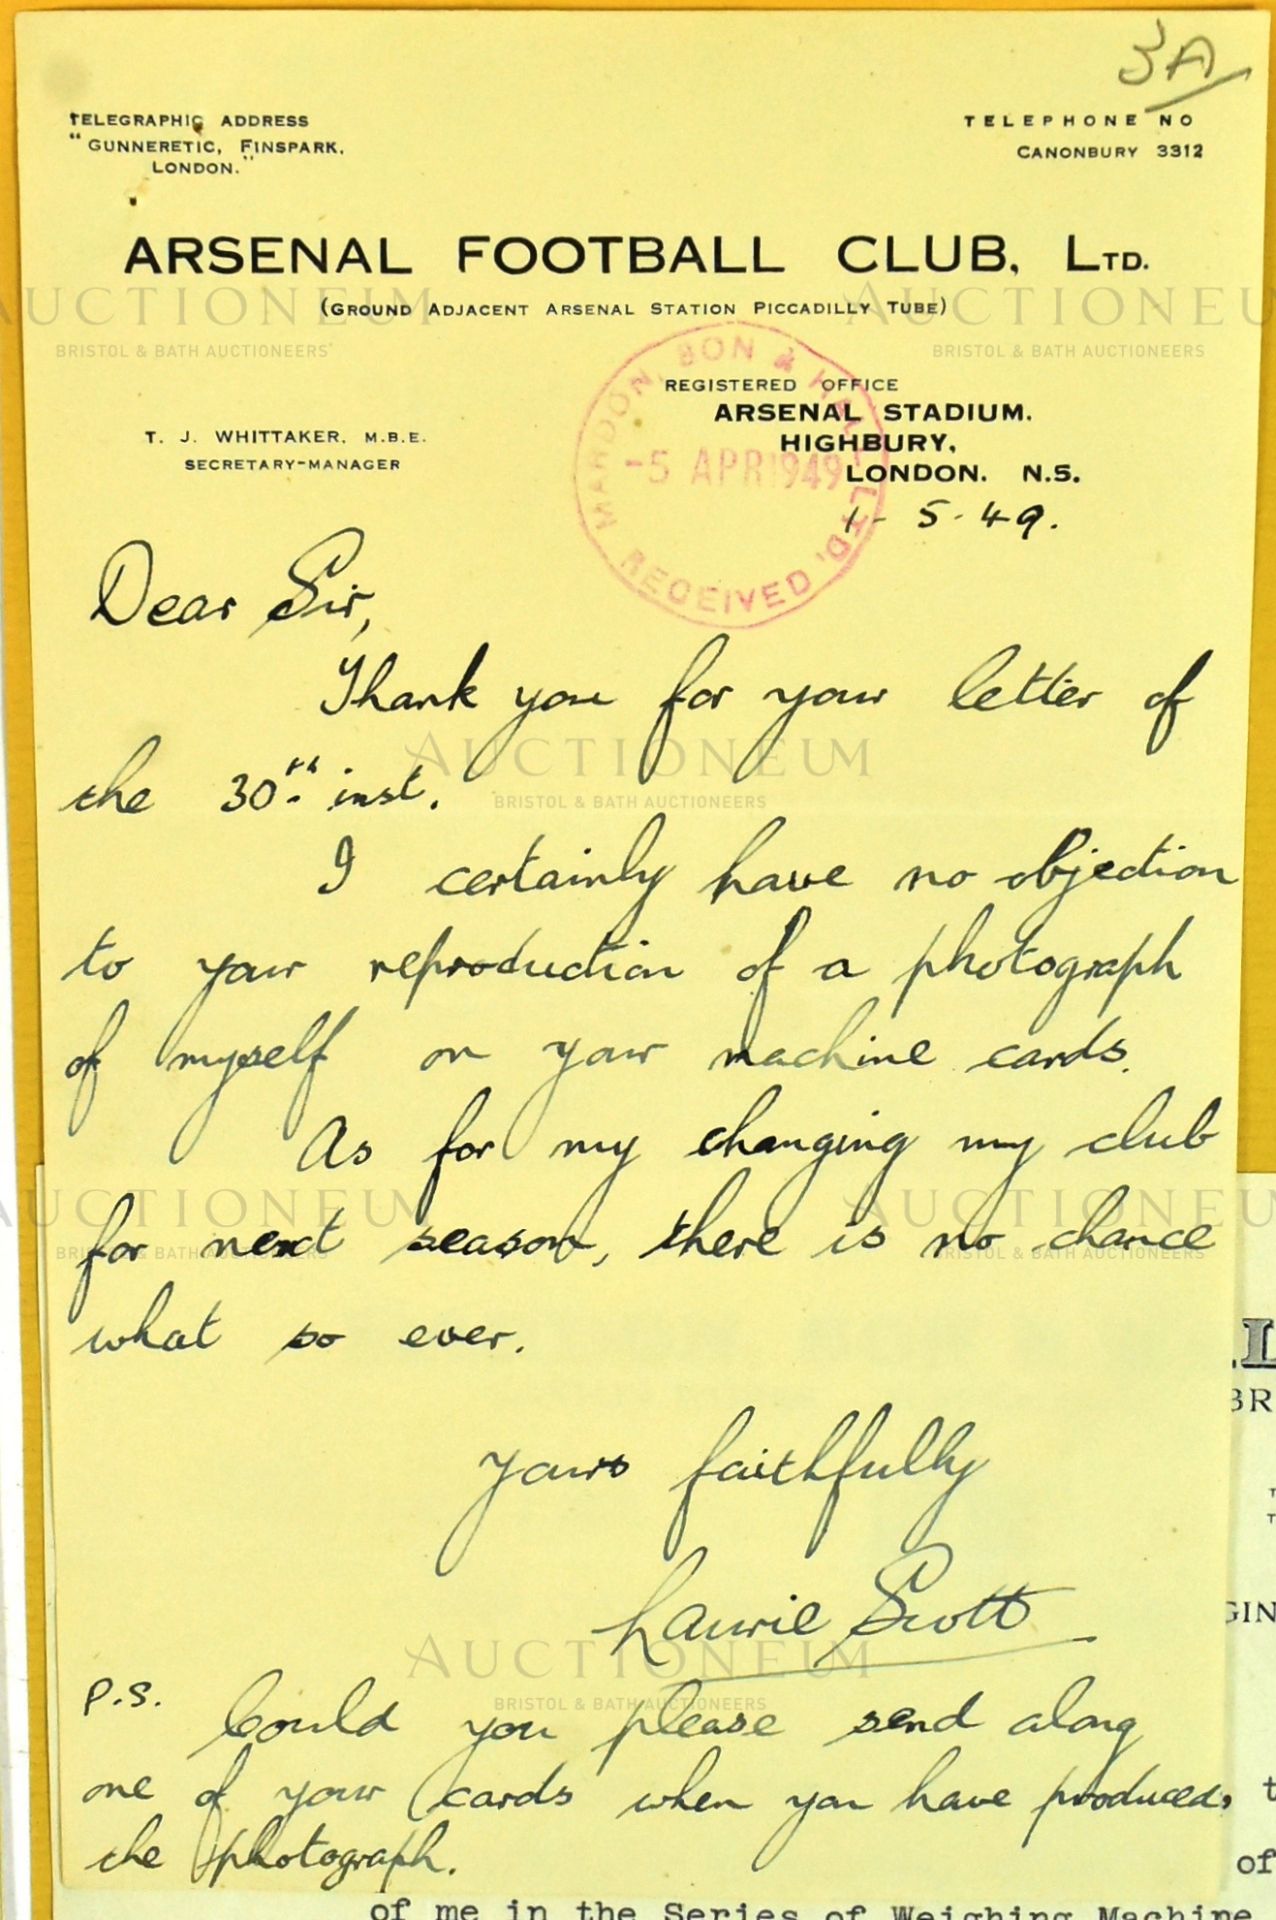 3A
TELEGRAPHIC ADDRESS
"GUNNERETIC, FINSPARK,
LONDON."
TELEPHONE NO
CANONBURY 3312
ARSENAL FOOTBALL CLUB, LTD.
(GROUND ADJACENT ARSENAL STATION PICCADILLY TUBE)
AUCTIONEUM
BRISTOL & BATH AUCTIONEERS
AUCTIONEUM
BRISTOL & BATH AUCTIONEERS
MARDON, SON & HALL, LTD.
-5 APR 1949
RECEIVED
REGISTERED OFFICE
ARSENAL STADIUM.
HIGHBURY,
LONDON. N.5.
T. J. WHITTAKER, M.B.E.
SECRETARY-MANAGER
1-5-49.
Dear Sir,
Thank you for your letter of
the 30th inst.
AUCTIONEUM
BRISTOL & BATH AUCTIONEERS
I certainly have no objection
to your reproduction of a photograph
of myself on your machine cards.
As for my changing my club
for next season, there is no chance
what so ever.
AUCTIONEUM
BRISTOL & BATH AUCTIONEERS
AUCTIONEUM
BRISTOL & BATH AUCTIONEERS
Yours faithfully
Laurie Scott
AUCTIONEUM
BRISTOL & BATH AUCTIONEERS
P.S. Could you please send along
one of your cards when you have produced
the photograph.
of
of me in the Series of Weighing Machine